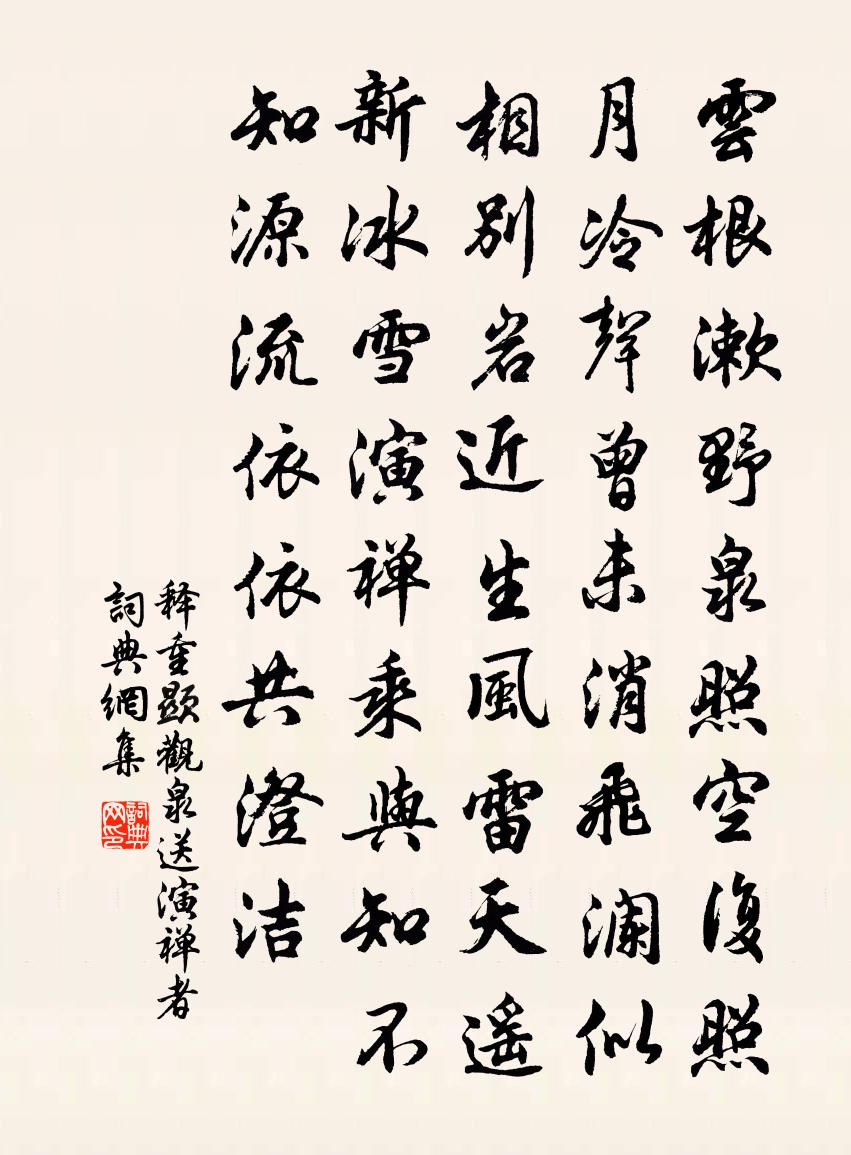 雲根漱野泉照空復照
月冷聲曾未消飛瀾似
相別岩近生風雷天遥
新冰雪演禅乘與知不
知源流依依共澄洁
释重顯觀泉送演禅者
詞典網集
詞典網印